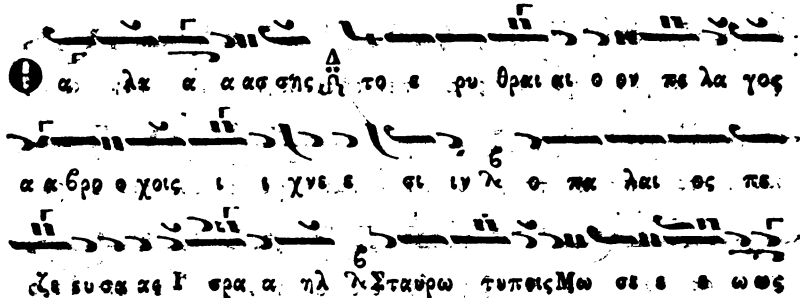 Θα λα α α ασ σης το ε ρυ θραι αι ο ον πε λα γος
α α βρο ο χοις ι ι χνε ε σι ιν ο πα λαι ος πε
ζε ευ σα ας Ι σρα α ηλ Σταυρω τυποις Μω σε ε ε ω ως